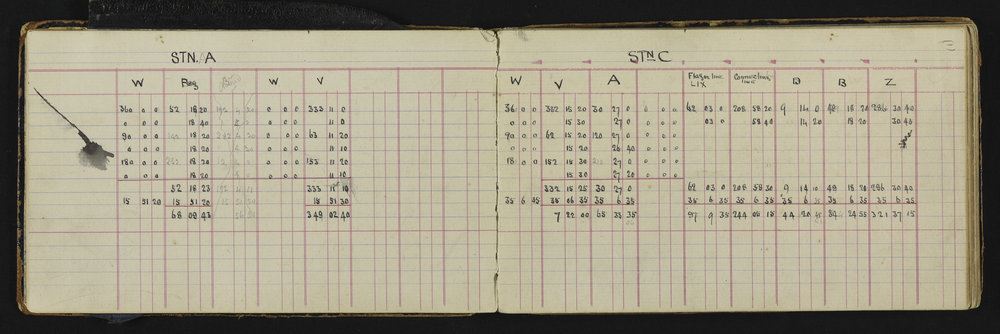 STN. A
W Bag W V
360 0 0 52 18 20 0 0 0 333 11 0
0 0 0 18 40 0 0 0 11 0
90 0 0 18 20 0 0 0 63 11 20
0 0 0 18 20 0 0 0 11 10
180 0 0 18 20 0 0 0 153 11 20
0 0 0 18 20 0 0 0 11 10
52 18 23 333 11 10
15 51 20 15 51 20 15 51 30
68 09 43 349 02 40
STN C
W V A Flagon line LIX Connecting line D B Z
36 0 0 332 15 20 30 27 0 0 0 0 62 03 0 208 58 20 9 14 0 49 18 20 286 30 40
0 0 0 15 30 27 0 0 0 0 03 0 58 40 14 20 18 20 30 40
90 0 0 62 15 20 120 27 0 0 0 0
0 0 0 15 20 26 40 0 0 0
18 0 0 152 15 30 27 20 0 0 0
0 0 0 15 30 27 20 0 0 0
332 15 25 30 27 0 62 03 0 208 58 30 9 14 10 49 18 20 286 30 40
35 6 35 35 06 35 35 6 35 35 6 35 35 6 35 35 6 35 35 6 35 35 6 35
7 22 00 65 33 35 97 9 35 244 05 15 44 20 45 84 24 55 321 37 15